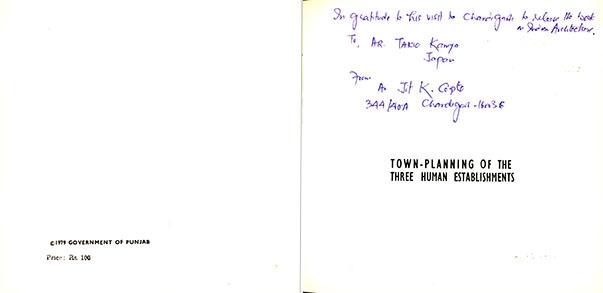 ©1979 GOVERNMENT OF PUNJAB
Price: Rs. 100
In gratitude to his visit to Chandigarh to release the book
on Indian Architecture.
To, AR. TAKIO Kamya
Japan
From
Ar Jit K. Gupta
344/40A Chandigarh-160036
TOWN-PLANNING OF THE
THREE HUMAN ESTABLISHMENTS